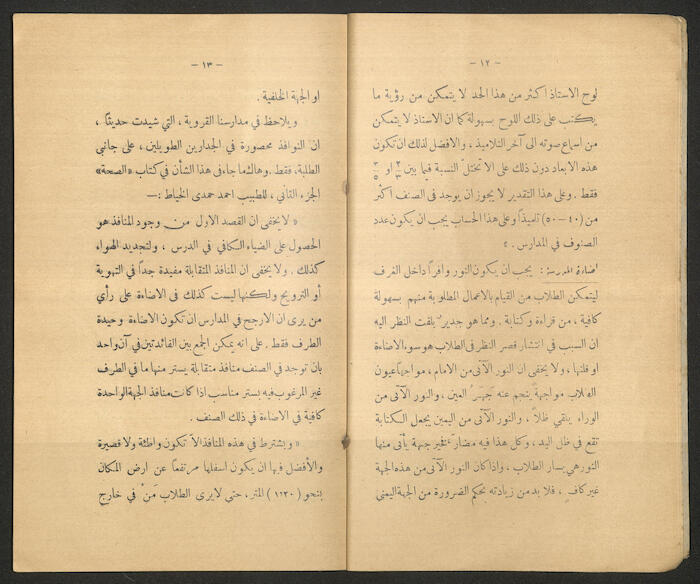 - ١٢ -
لوح الاستاذ اكثر من هذا الحد لا يتمكن من رؤية ما
يكتب على ذلك اللوح بسهولة كما ان الاستاذ لا يتمكن
من اسماع صوته الى آخر التلاميذ، والافضل لذلك ان تكون
هذه الابعاد دون ذلك على الا تختل النسبة فيما بين او
فقط. وعلى هذا التقدير لا يجوز ان يوجد في الصنف اكثر
من (٤٠-٥٠) تلميذاً وعلى هذا الحساب يجب ان يكون عدد
الصنوف في المدارس. ؟
اضاءة المدرسة: يجب ان يكون النور وافراً داخل الغرف
ليتمكن الطلاب من القيام بالاعمال المطلوبة منهم بسهولة
كافية، من قراءة وكتابة. ومما هو جدير بلفت النظر اليه
ان السبب في انتشار قصر النظر في الطلاب هو سوء الاضاءة
او قلتها، ولا يخفى ان النور الآتى من الامام، مواجهاً عيون
الطلاب مواجهةً ينجم عنه جَهَرُ العين، والنور الآتى من
الوراء يلقي ظلاً، والنور الآتى من اليمين يجعل الكتابة
تقع في ظل اليد، وكل هذا فيه مضارّ فخير جهة يأتى منها
النور هي يسار الطلاب، واذا كان النور الآتى من هذه الجهة
غير كافٍ، فلا بد من زيادته بحكم الضرورة من الجهة اليمنى
- ١٣ -
او الجهة الخلفية.
ويلاحظ في مدارسنا القروية، التي شيدت حديثاً،
ان النوافذ محصورة في الجدارين الطويلين، على جانبي
الطلبة، فقط. وهاك ما جاء في هذا الشأن في كتاب «الصحة»
الجزء الثاني، للطبيب احمد حمدى الخياط:—
« لا يخفى ان القصد الاول من وجود المنافذ هو
الحصول على الضياء الكافي في الدرس، ولتجديد الهواء
كذلك. ولا يخفى ان المنافذ المتقابلة مفيدة جداً في التهوية
أو الترويح ولكنها ليست كذلك في الاضاءة على رأي
من يرى ان الارجح في المدارس ان تكون الاضاءة وحيدة
الطرف فقط. على انه يمكن الجمع بين الفائدتين في آن واحد
بان توجد في الصنف منافذ متقابلة يستر منها ما في الطرف
غير المرغوب فيه بستر مناسب اذا كانت منافذ الجهة الواحدة
كافية في الاضاءة في ذلك الصنف.
« ويشترط في هذه المنافذ الا تكون واطئة ولا قصيرة
والأفضل فيها ان يكون اسفلها مرتفعاً عن ارض المكان
بنحو (١٢٣٠) المتر، حتى لا يرى الطلاب مَنْ في خارج